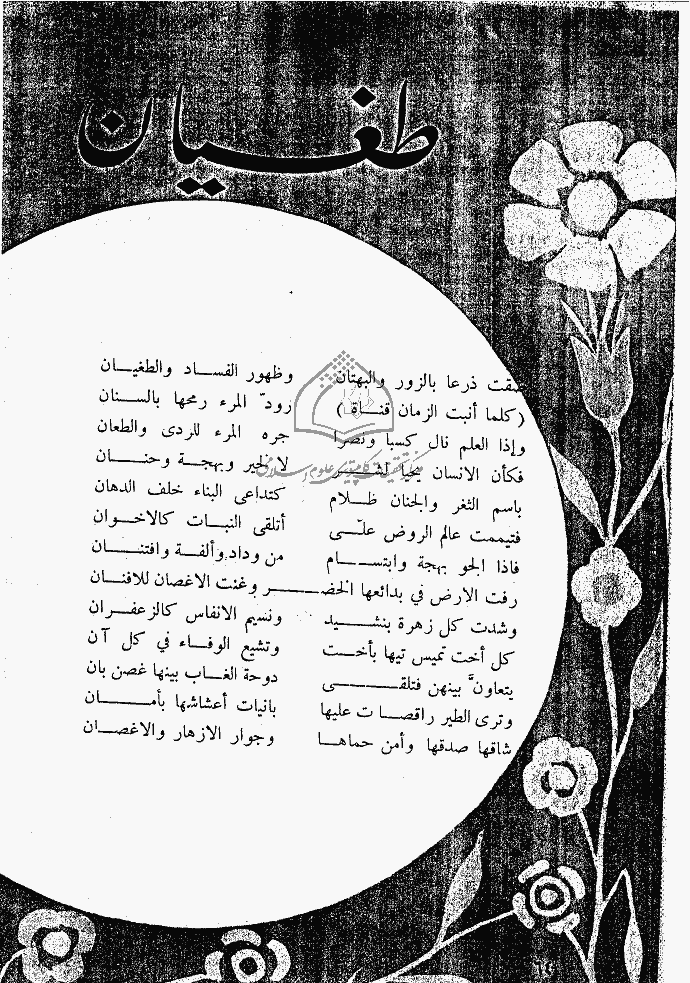 طغيان
ضقت ذرعا بالزور والبهتان وظهور الفساد والطغيان
(كلما أنبت الزمان قناة) زودّ المرء رمحها بالسنان
وإذا العلم نال كسبا ونصرا جره المرء للردى والطعان
فكأن الانسان يحيا لشر لا لخير وبهجة وحنان
باسم الثغر والجنان ظلام كتداعى البناء خلف الدهان
فتيممت عالم الروض علّى أتلقى النبات كالاخوان
فاذا الجو بهجة وابتسام من وداد وألفة وافتنان
رفت الارض في بدائعها الخضر وغنت الاغصان للافنان
وشدت كل زهرة بنشيد ونسيم الانفاس كالزعفران
كل أخت تميس تيها بأخت وتشيع الوفاء في كل آن
يتعاونّ بينهن فتلقى دوحة الغاب بينها غصن بان
وترى الطير راقصات عليها بانيات أعشاشها بأمان
شاقها صدقها وأمن حماها وجوار الازهار والاغصان